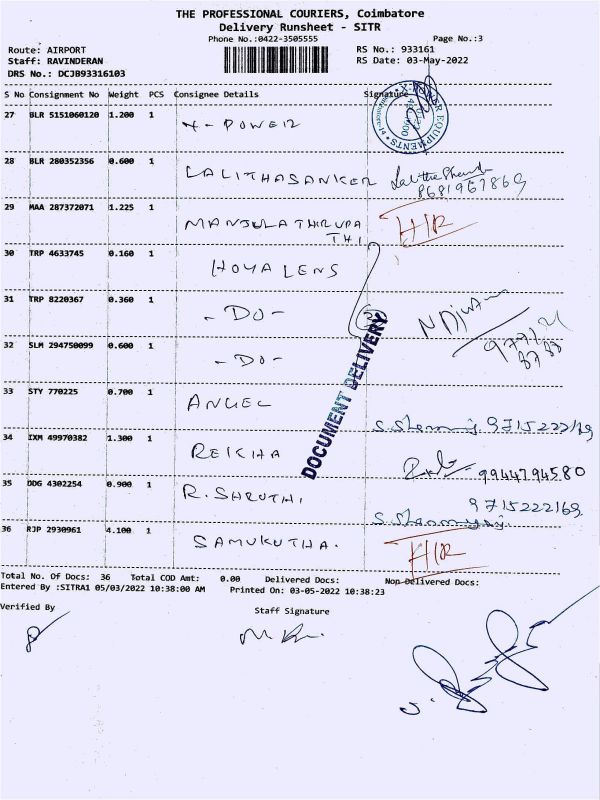 THE PROFESSIONAL COURIERS, Coimbatore
Delivery Runsheet - SITR
Phone No.:0422-3505555 Page No.:3
Route: AIRPORT RS No.: 933161
Staff: RAVINDERAN RS Date: 03-May-2022
DRS No.: DCJB93316103
S No Consignment No Weight PCS Consignee Details Signature
27 BLR 5151060120 1.200 1 X-POWER
28 BLR 280352356 0.600 1 LALITHASANKER
8681967869
29 MAA 287372071 1.225 1 MANJULATHIRUPA
THI
30 TRP 4633745 0.160 1 HOYALENS
31 TRP 8220367 0.360 1 -DO-
32 SLM 294750099 0.600 1 -DO-
DOCUMENT DELIVERY
33 STY 770225 0.700 1 ANGEL
9715222169
34 IXM 49970382 1.300 1 REKHA 9944794580
35 DDG 4302254 0.900 1 R.SHRUTHI 9715222169
36 RJP 2930961 4.100 1 SAMUKUTHA.
Total No. Of Docs: 36 Total COD Amt: 0.00 Delivered Docs: Non-Delivered Docs:
Entered By :SITRA1 05/03/2022 10:38:00 AM Printed On: 03-05-2022 10:38:23
Verified By Staff Signature